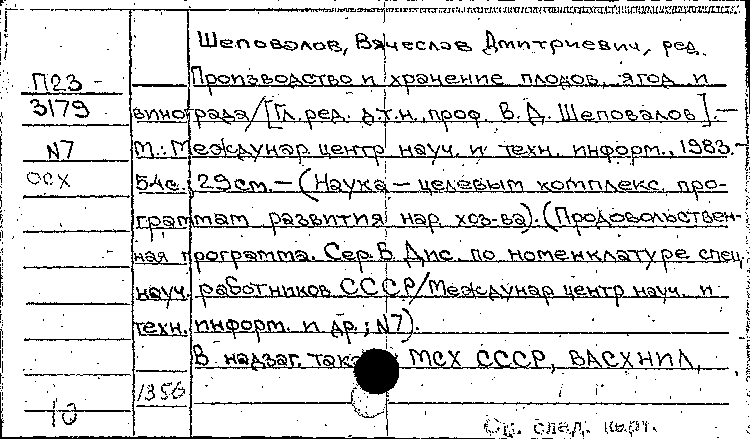 Шеповалов, Вячеслав Дмитриевич, ред.
П23-
3179
N7
осх
Производство и хранение плодов, ягод и
винограда/[Гл. ред. д.т.н., проф. В. Д. Шеповалов].—
М.: Междунар центр науч. и техн. информ., 1983.-
54с.; 29см.—(Наука — целевым комплекс. про-
граммам развития нар. хоз-ва).(Продовольствен-
ная программа. Сер. Б. Дис. по номенклатуре спец.
науч. работников СССР/Междунар центр науч. и
техн. информ. и др.; N7).
В надзаг. также: МСХ СССР, ВАСХНИЛ,
1356
10
См. след. карт.